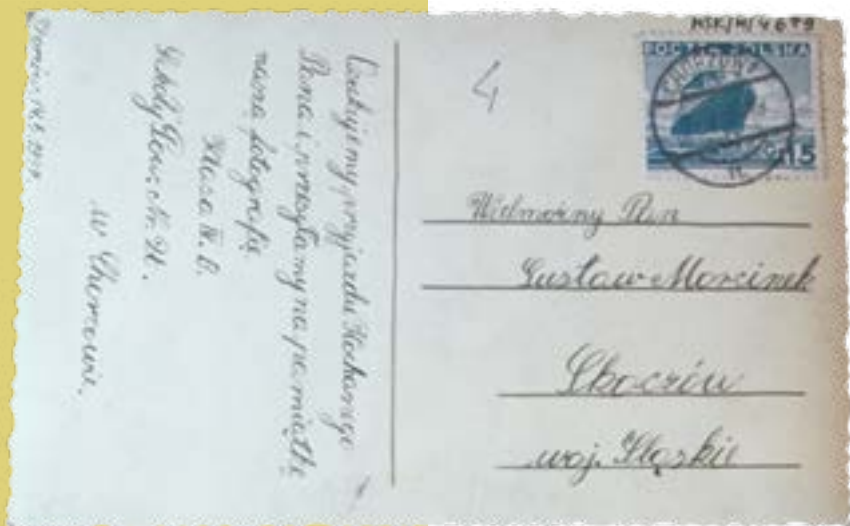 MSK/H/4679
POCZTA POLSKA
CHORZÓW
15
4
Wielmożny Pan
Gustaw Morcinek
Skoczów
woj. Śląskie
Oczekujemy przyjazdu Kochanego
Pana i przesyłamy na pamiątkę
naszą fotografję.
Klasa
Szkoły Pow. Nr.
w Chorzowie.
Chorzów,